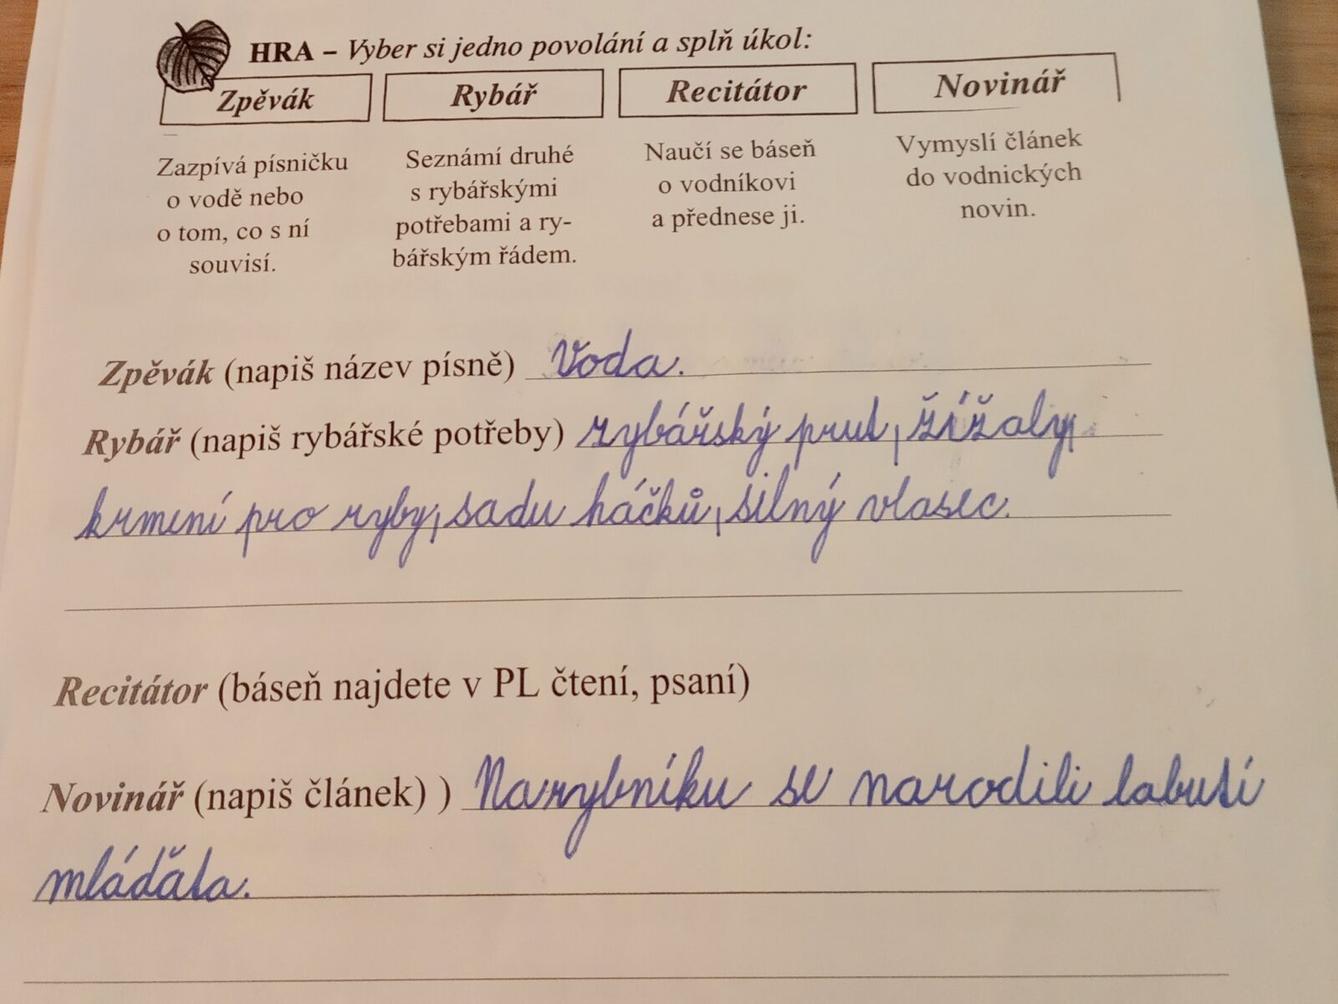 HRA – Vyber si jedno povolání a splň úkol:
Zpěvák Rybář Recitátor Novinář
Zazpívá písničku
o vodě nebo
o tom, co s ní
souvisí.
Seznámí druhé
s rybářskými
potřebami a ry-
bářským řádem.
Naučí se báseň
o vodníkovi
a přednese ji.
Vymyslí článek
do vodnických
novin.
Zpěvák (napiš název písně) Voda.
Rybář (napiš rybářské potřeby) rybářský prut, žížaly,
krmení pro ryby, sadu háčků, silný vlasec.
Recitátor (báseň najdete v PL čtení, psaní)
Novinář (napiš článek) ) Na rybníku se narodili labutí
mláďata.